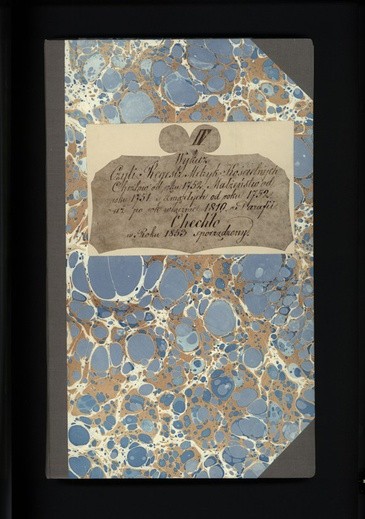 IV
Wykaz
Czyli Regestr Metryk Kościelnych
Chrztów od roku 1752 Małżeństw od
roku 1751 i zmarłych od roku 1752
aż po rok 1810 w Parafii
Chechło
w Roku 1853 sporządzony.